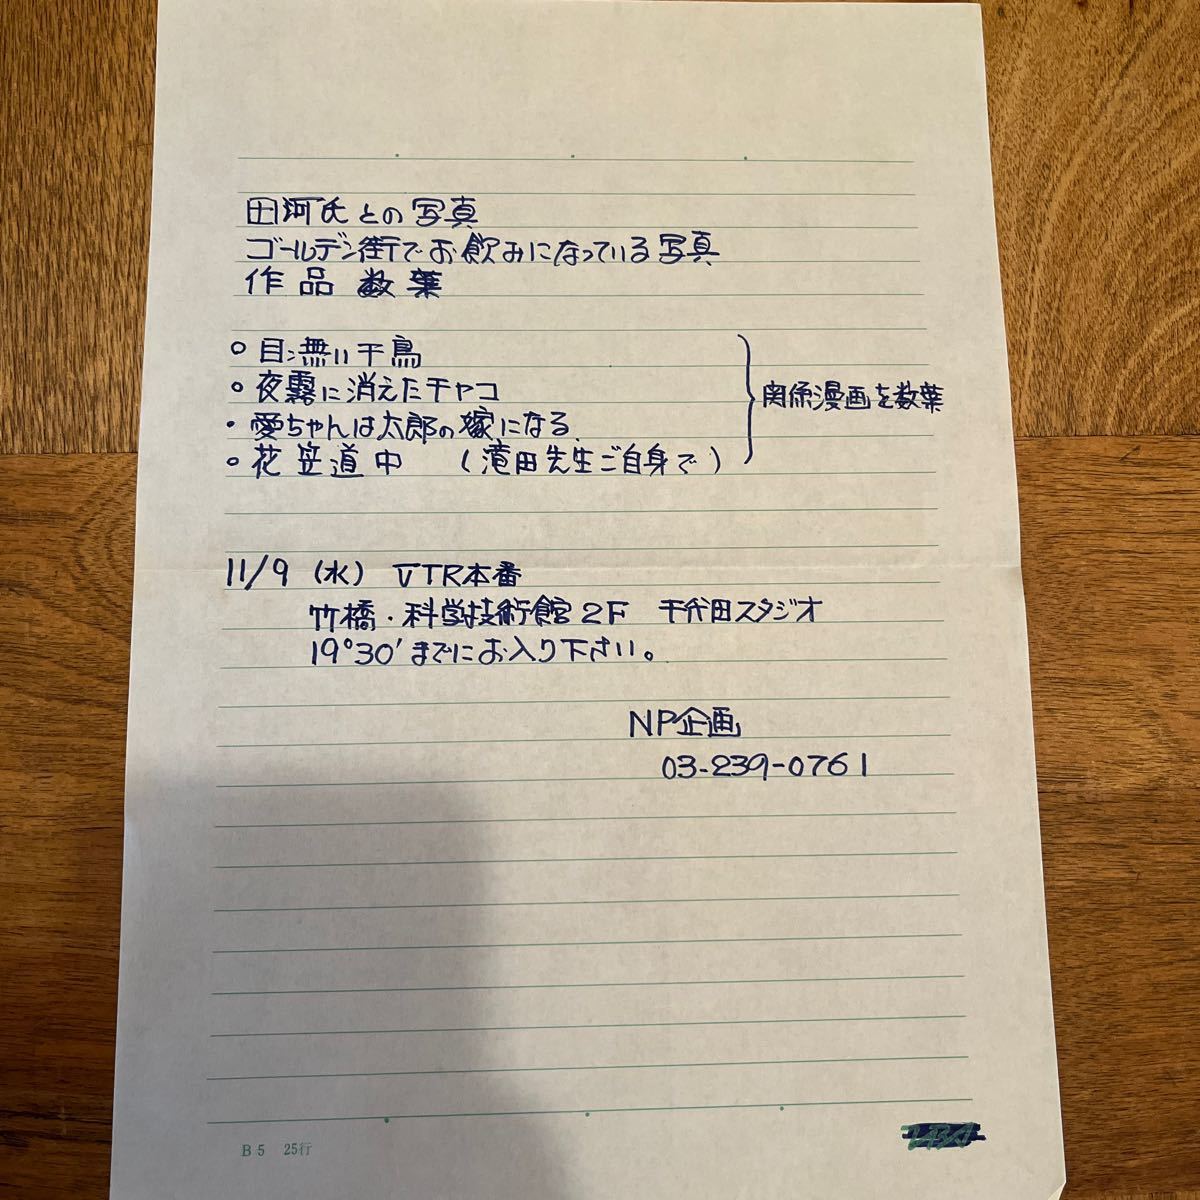 田河氏との写真
ゴールデン街でお飲みになっている写真
作品数葉
○目ン無い千鳥
○夜霧に消えたチャコ
・愛ちゃんは太郎の嫁になる
○花笠道中 (滝田先生ご自身で)
関係漫画を数葉
11/9 (水) VTR本番
竹橋・科学技術館2F 千代田スタジオ
19°30'までにお入り下さい。
NP企画
03-239-0761
B5 25行